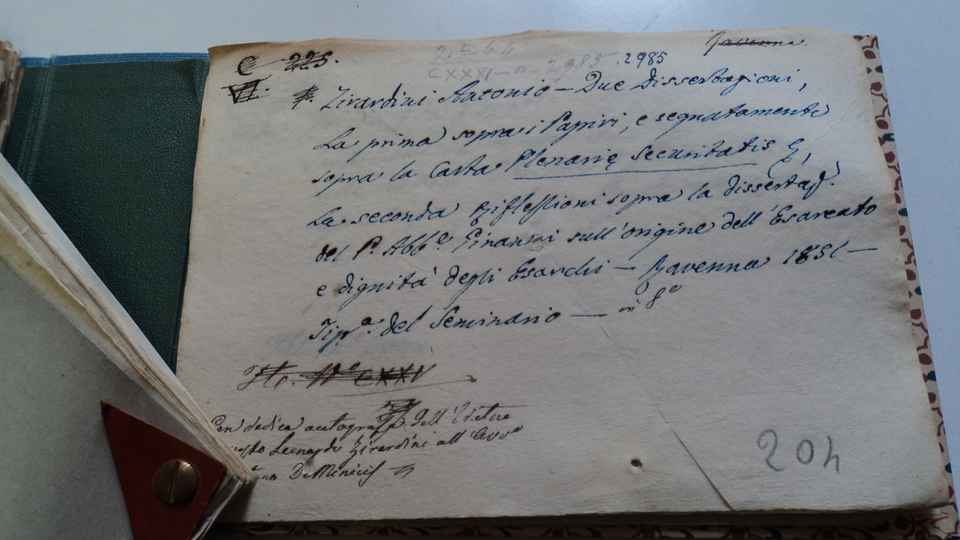 C 225.
2985
Ravenna
VI.
CXXXI - n - 2985
Zirardini Antonio - Due Dissertazioni,
La prima sopra i Papiri, e segnatamente
sopra la Carta Plenarię Securitatis &,
La seconda Riflessioni sopra la dissertaz.
del P. Abb.e Ginanni sull'origine dell'Esarcato
e dignità degli Esarchi - Ravenna 1851 -
Tip.a del Seminario - in 8.o
N.o CXXV
Con dedica autografa dell'Editore
Leonardo Zirardini all'Avv.o
De Minicis
204